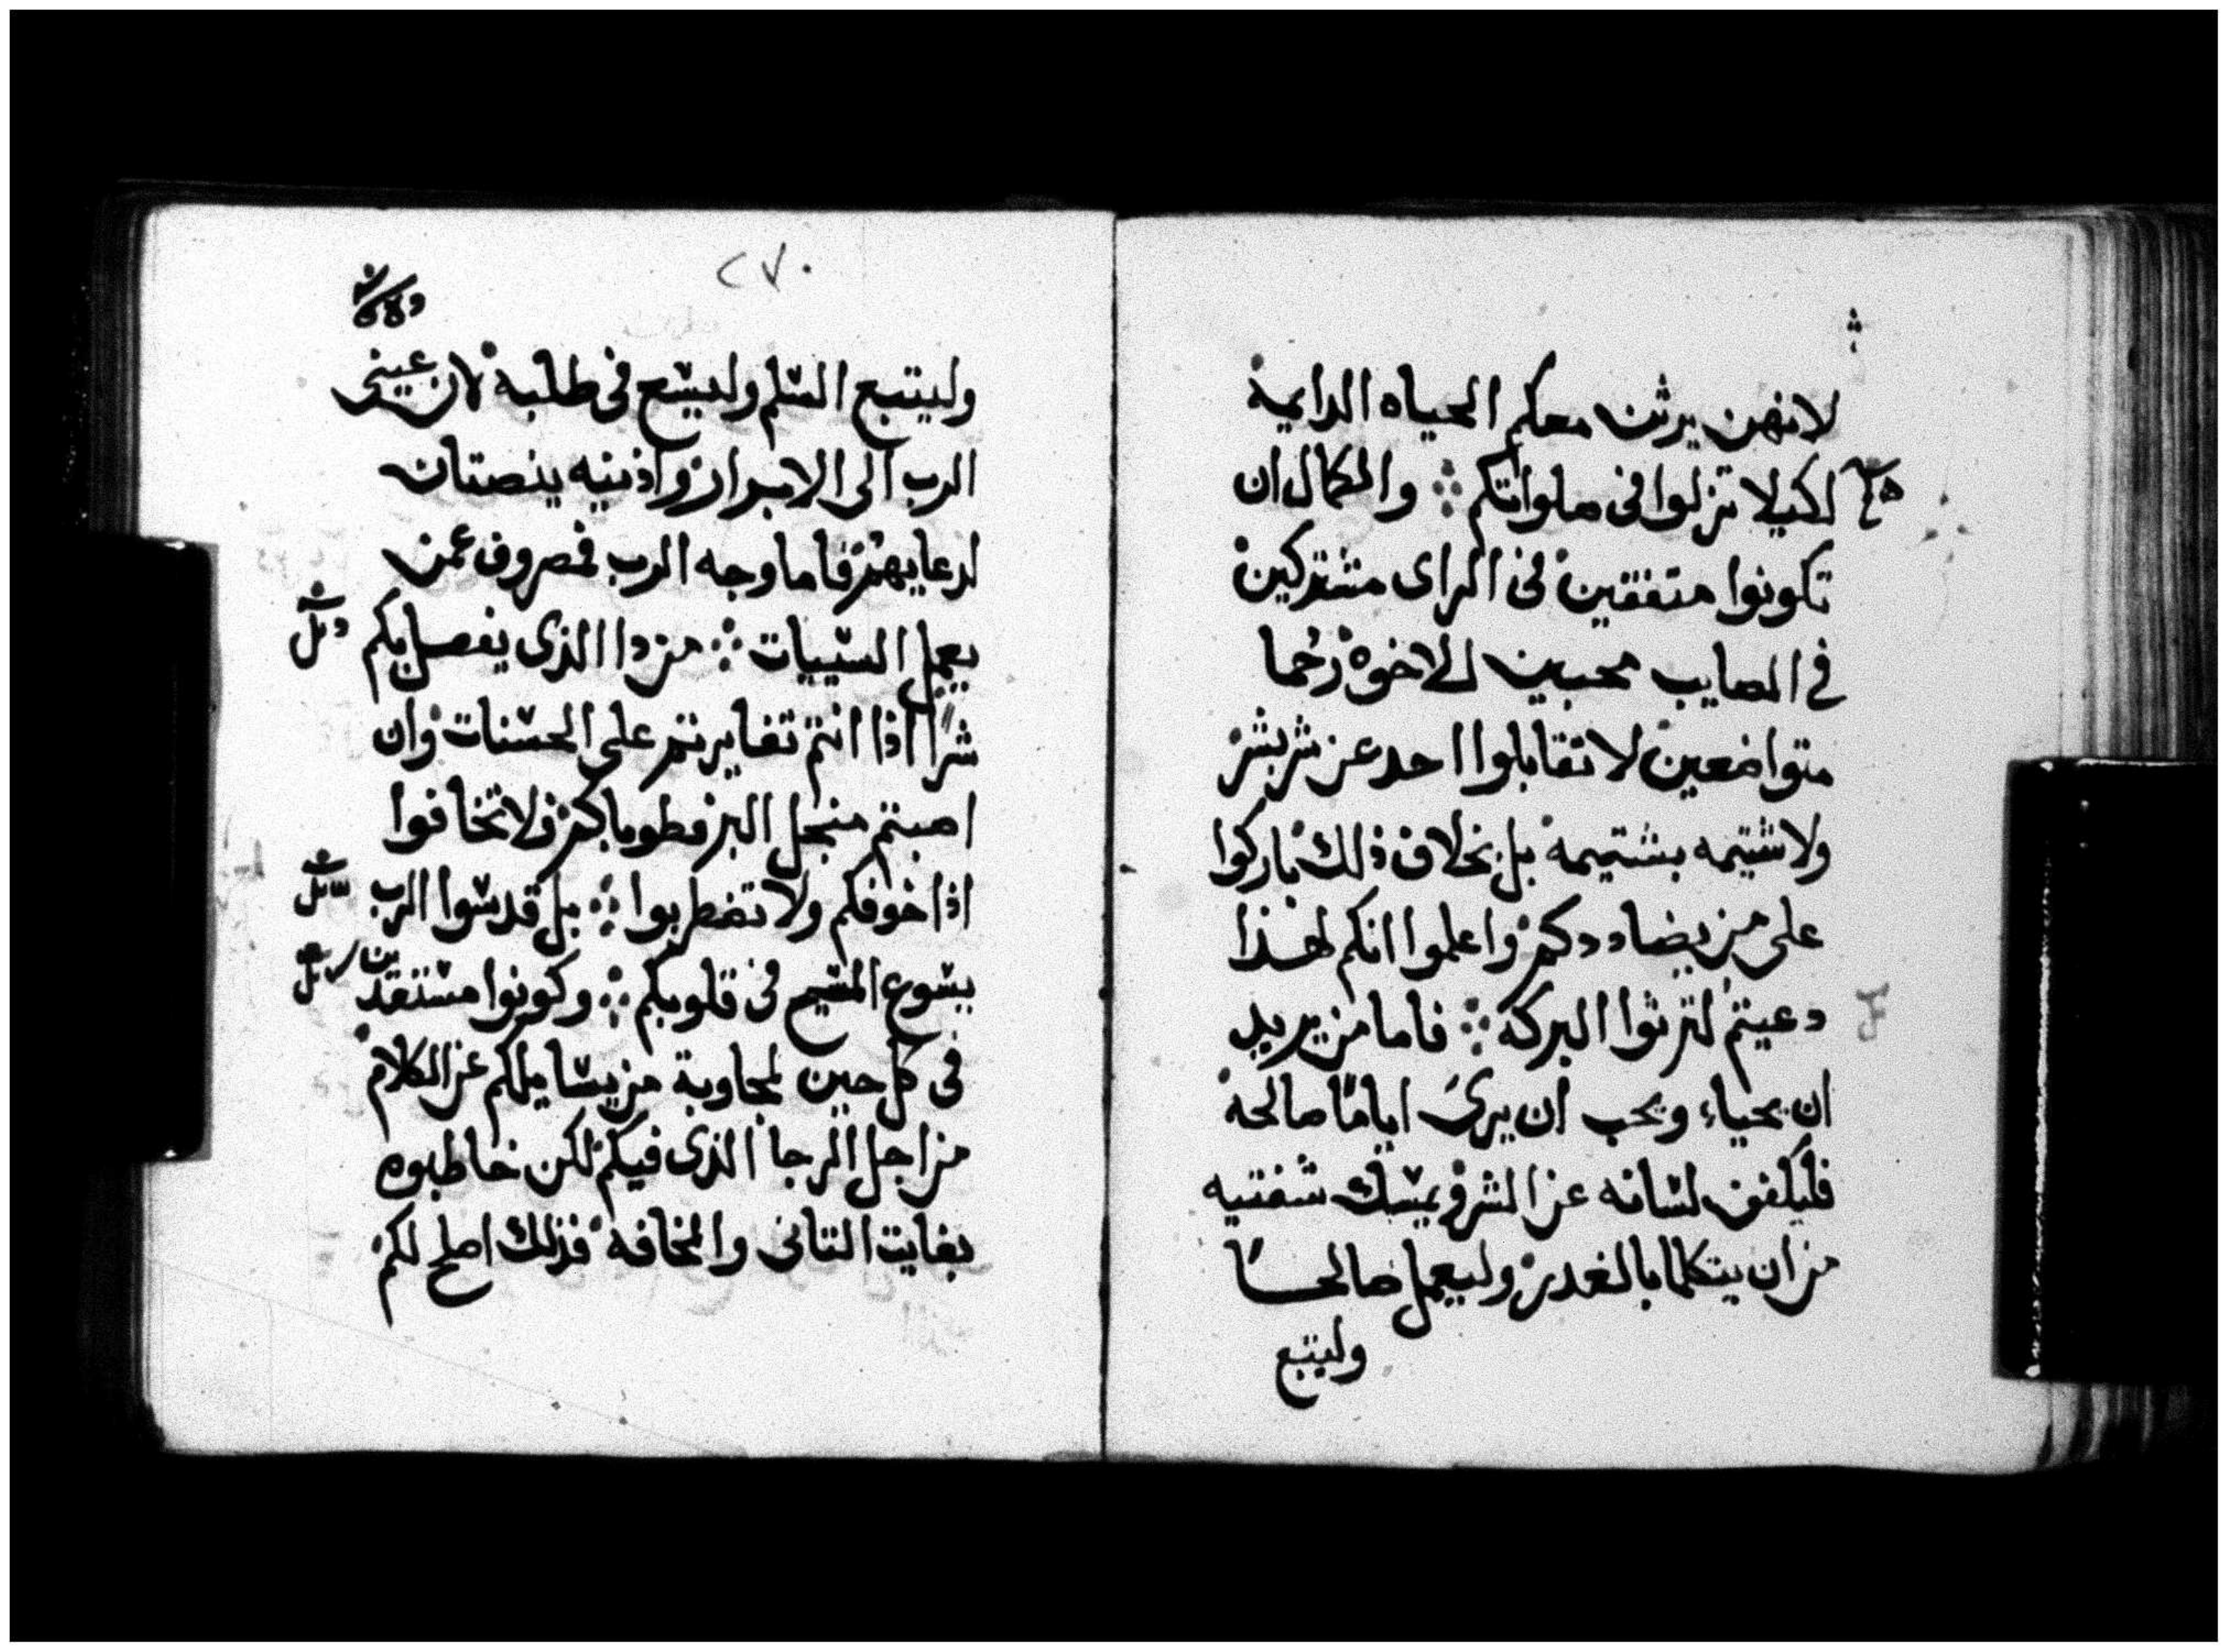 لانهن يرثن معكم الحياه الدايمة
لكيلا تزلوا في صلواتكم ⁘ والكمال ان
تكونوا متفقين في الراى مشتركين
في المصايب محبين للاخوة رحُما
متواضعين لا تقابلوا احد عن شر بشر
ولا شتيمه بشتيمة بل بخلاف ذلك باركوا
على من يضاددكم واعلموا انكم لهذا
دعيتم لترثوا البركة ⁘ فاما من يريد
ان يحياء ويحب ان يرىَ اياماً صالحة
فليكفف لسانه عن الشر ويمسك شفتيه
من ان يتكلما بالغدر وليعمل صالحـــاً
وليتبع
٢٧٠
وليتبع السلم وليسع في طلبة لان عيني
الرب الى الابرار واذنيه ينصتان
لدعايهم فاما وجه الرب فمصروف عمن
يعمل السييات ⁘ من دا الذى يفعل بكم
شراً اذا انتم تغايرتم على الحسنات وان
اصبتم منجل البر فطوباكم ولا تخافوا
اذا خوفكم ولا تضطربوا ⁘ بل قدسوا الرب
يسوع المسيح في قلوبكم ⁘ وكونوا مستعدين
في كل حين لمجاوبة من يسايلكم عن الكلام
من اجل الرجا الذى فيكم لكن خاطبوه
بغايت التانى والمخافة فذلك اصلح لكم